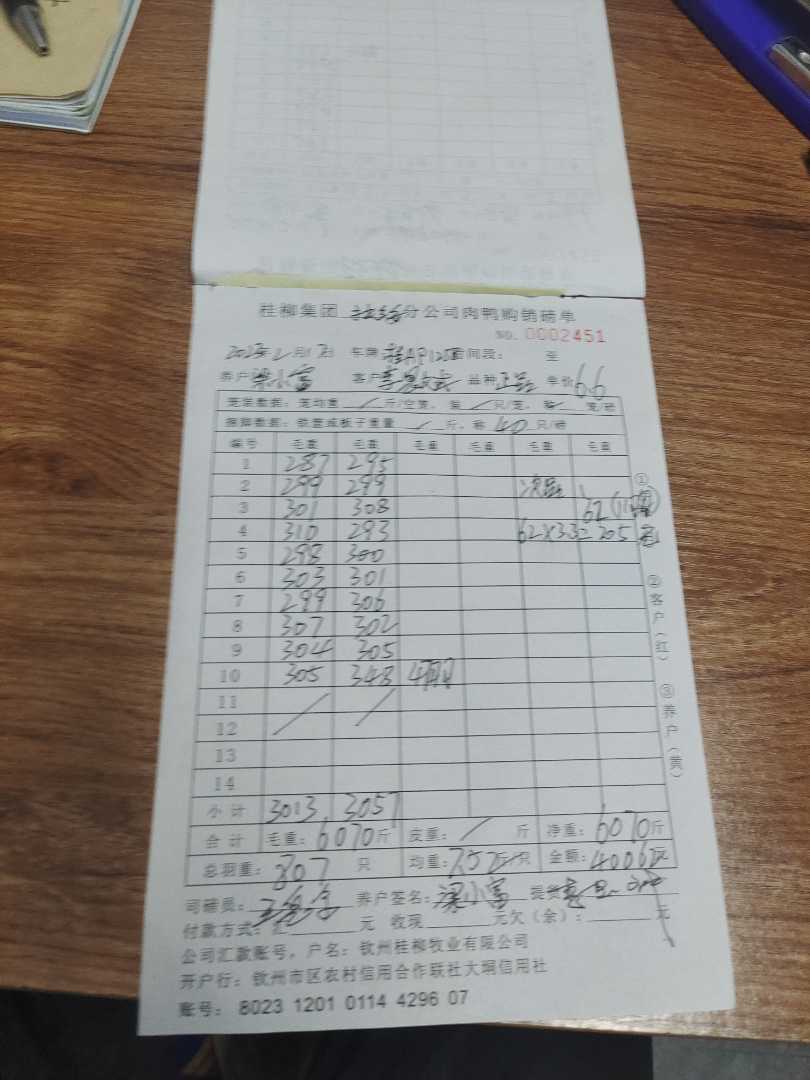 桂柳集团 分公司肉鸭购销磅单
NO. 0002451
2023年2月17日 车牌 桂AP120 时间段： 至
养户 梁小富 客户 李 品种 正品 单价 6.6
笼装数据：笼均重 / 斤/空笼，装 / 只/笼，称 / 笼/磅
捆脚数据：铁篮或板子重量 / 斤，称 40 只/磅
编号 毛重 毛重 毛重 毛重 毛重 毛重
1 287 295
2 299 299 次品：
3 301 308 62
4 310 293 62×3.3=205
5 298 300
6 303 301
7 299 306
8 307 302
9 304 305
10 305 348 47只
11 / /
12
13
14
小计 3013 3057
合计 毛重：6070斤 皮重：/ 斤 净重：6070斤
总羽重：807 只 均重：7.52斤/只 金额：40062元
司磅员： 养户签名：梁小富 提货
付款方式：汇 元 收现 元欠（余）： 元
公司汇款账号，户名：钦州桂柳牧业有限公司
开户行：钦州市区农村信用合作联社大垌信用社
账号： 8023 1201 0114 4296 07
①
②客户（红）
③养户（黄）